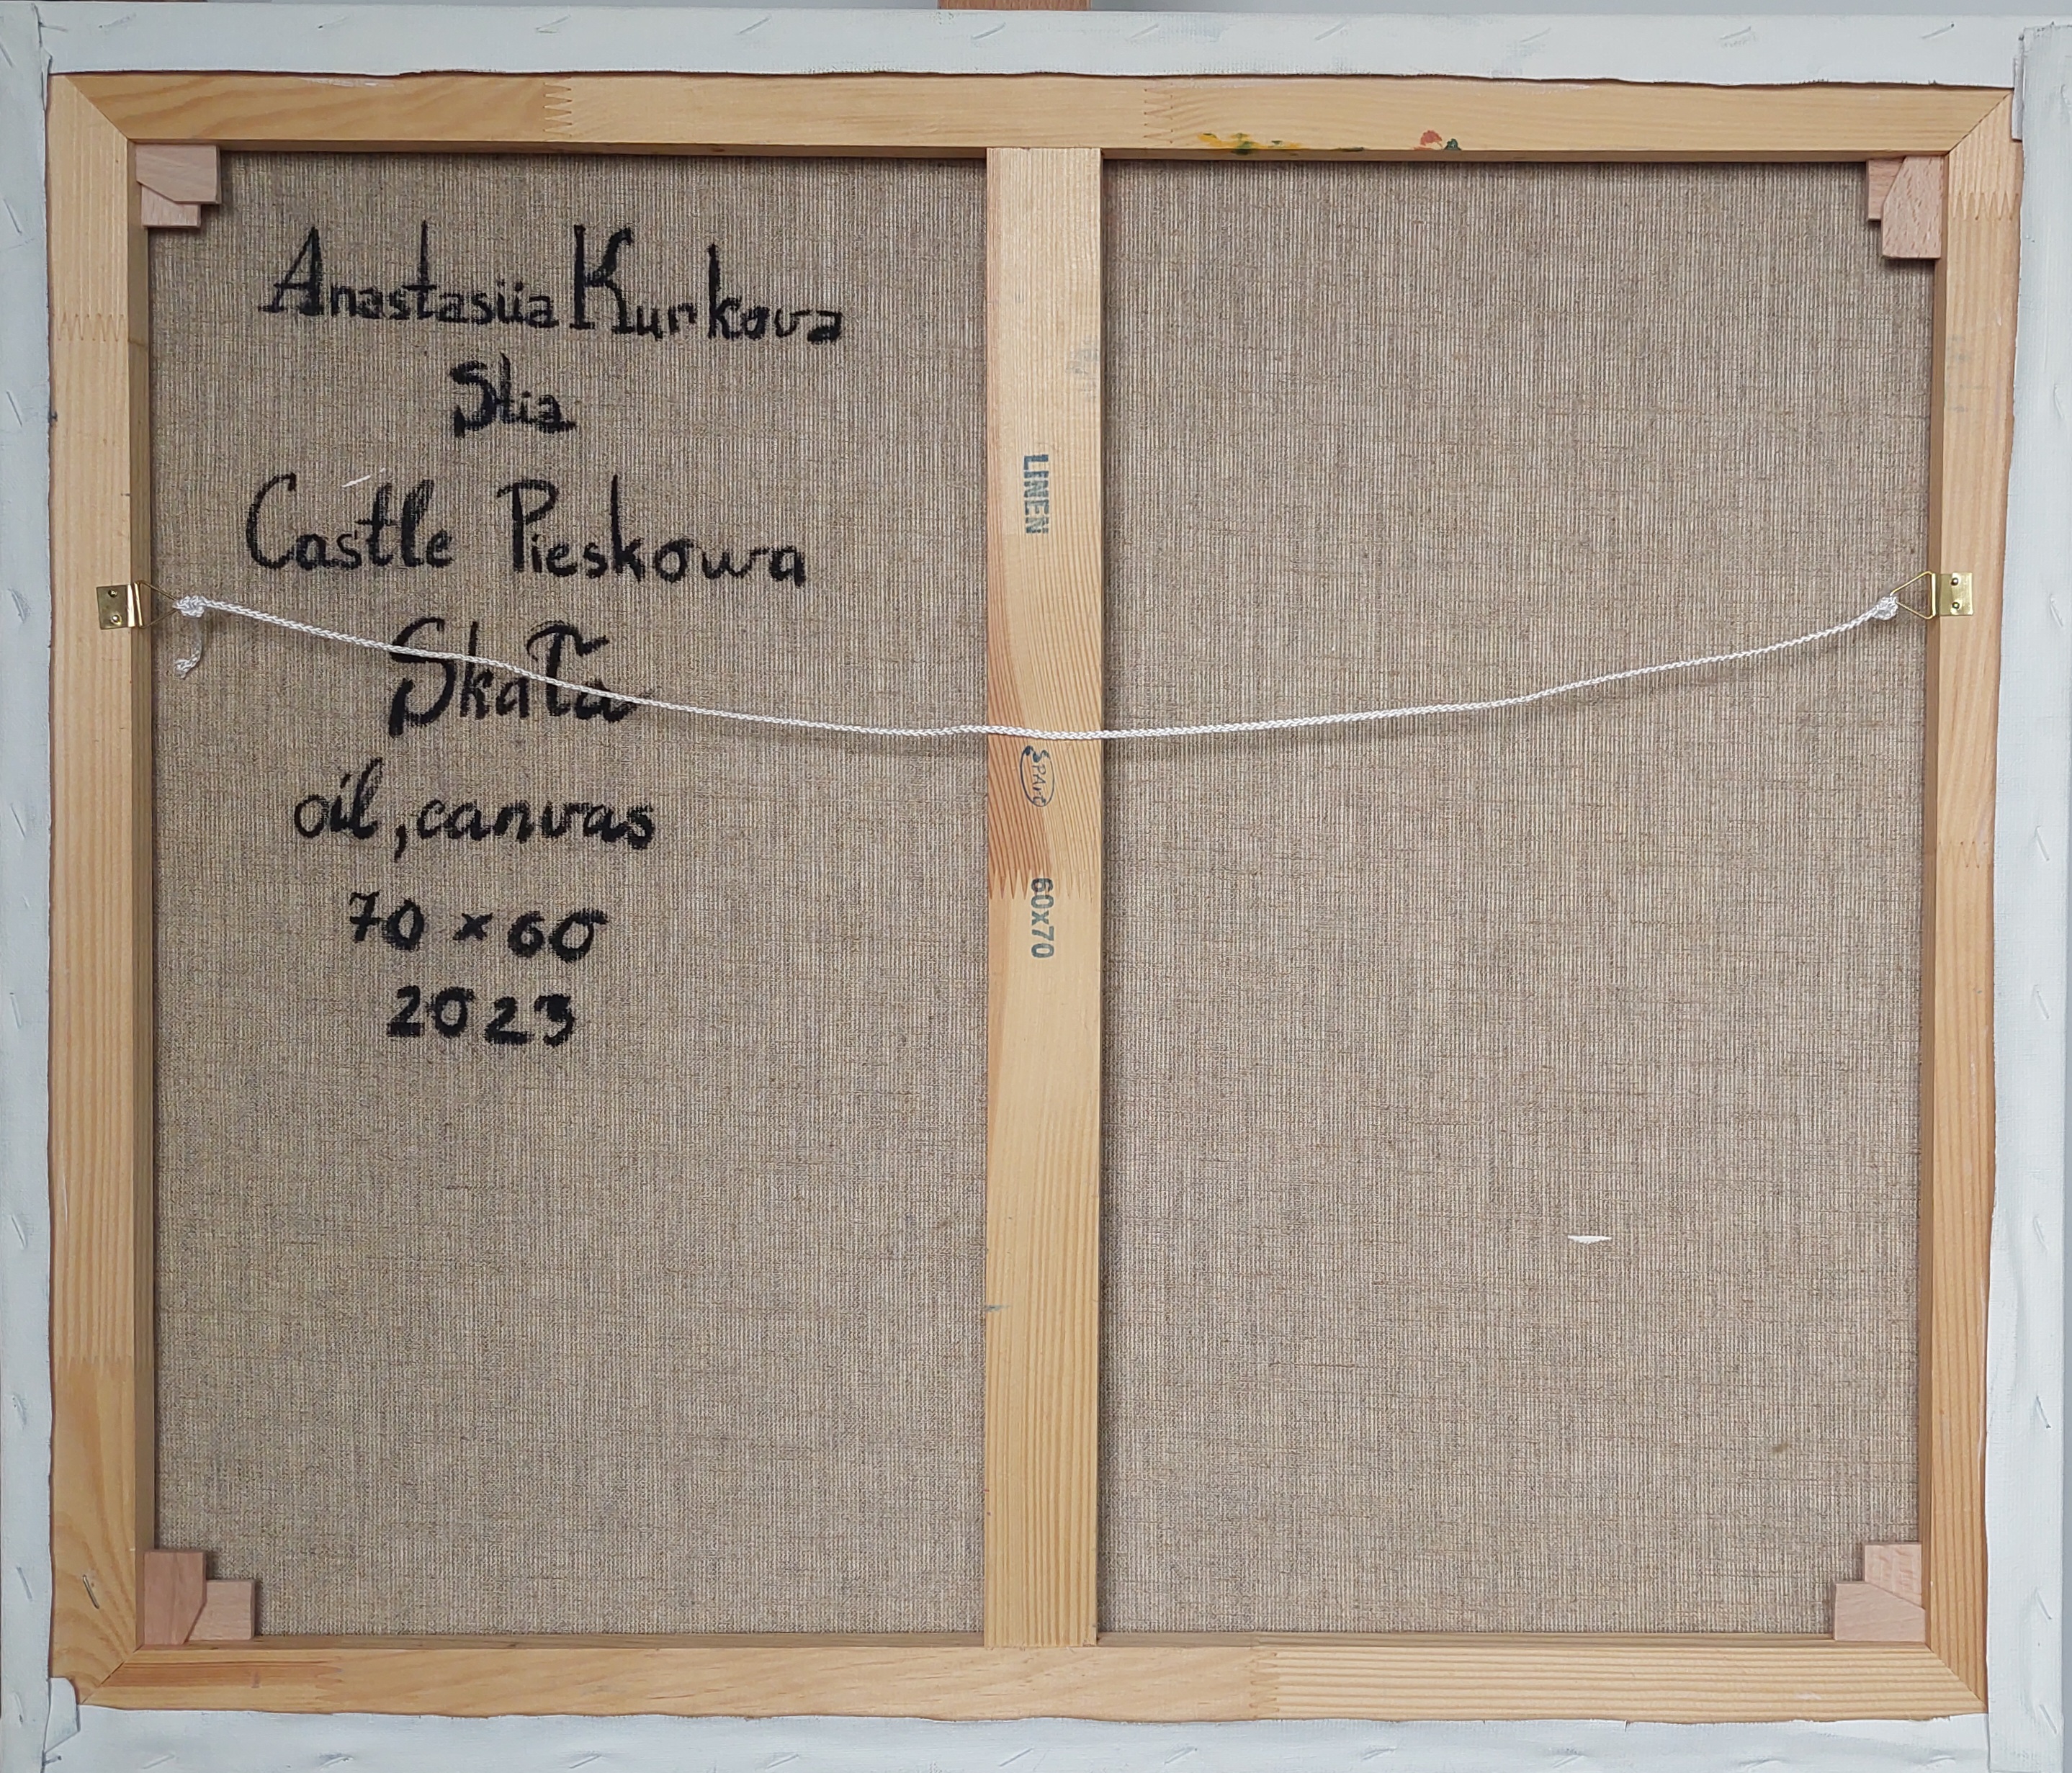 Anastasiia Kurkova
Stia
Castle Pieskowa
Skała
oil, canvas
70 × 60
2023
LINEN
60x70